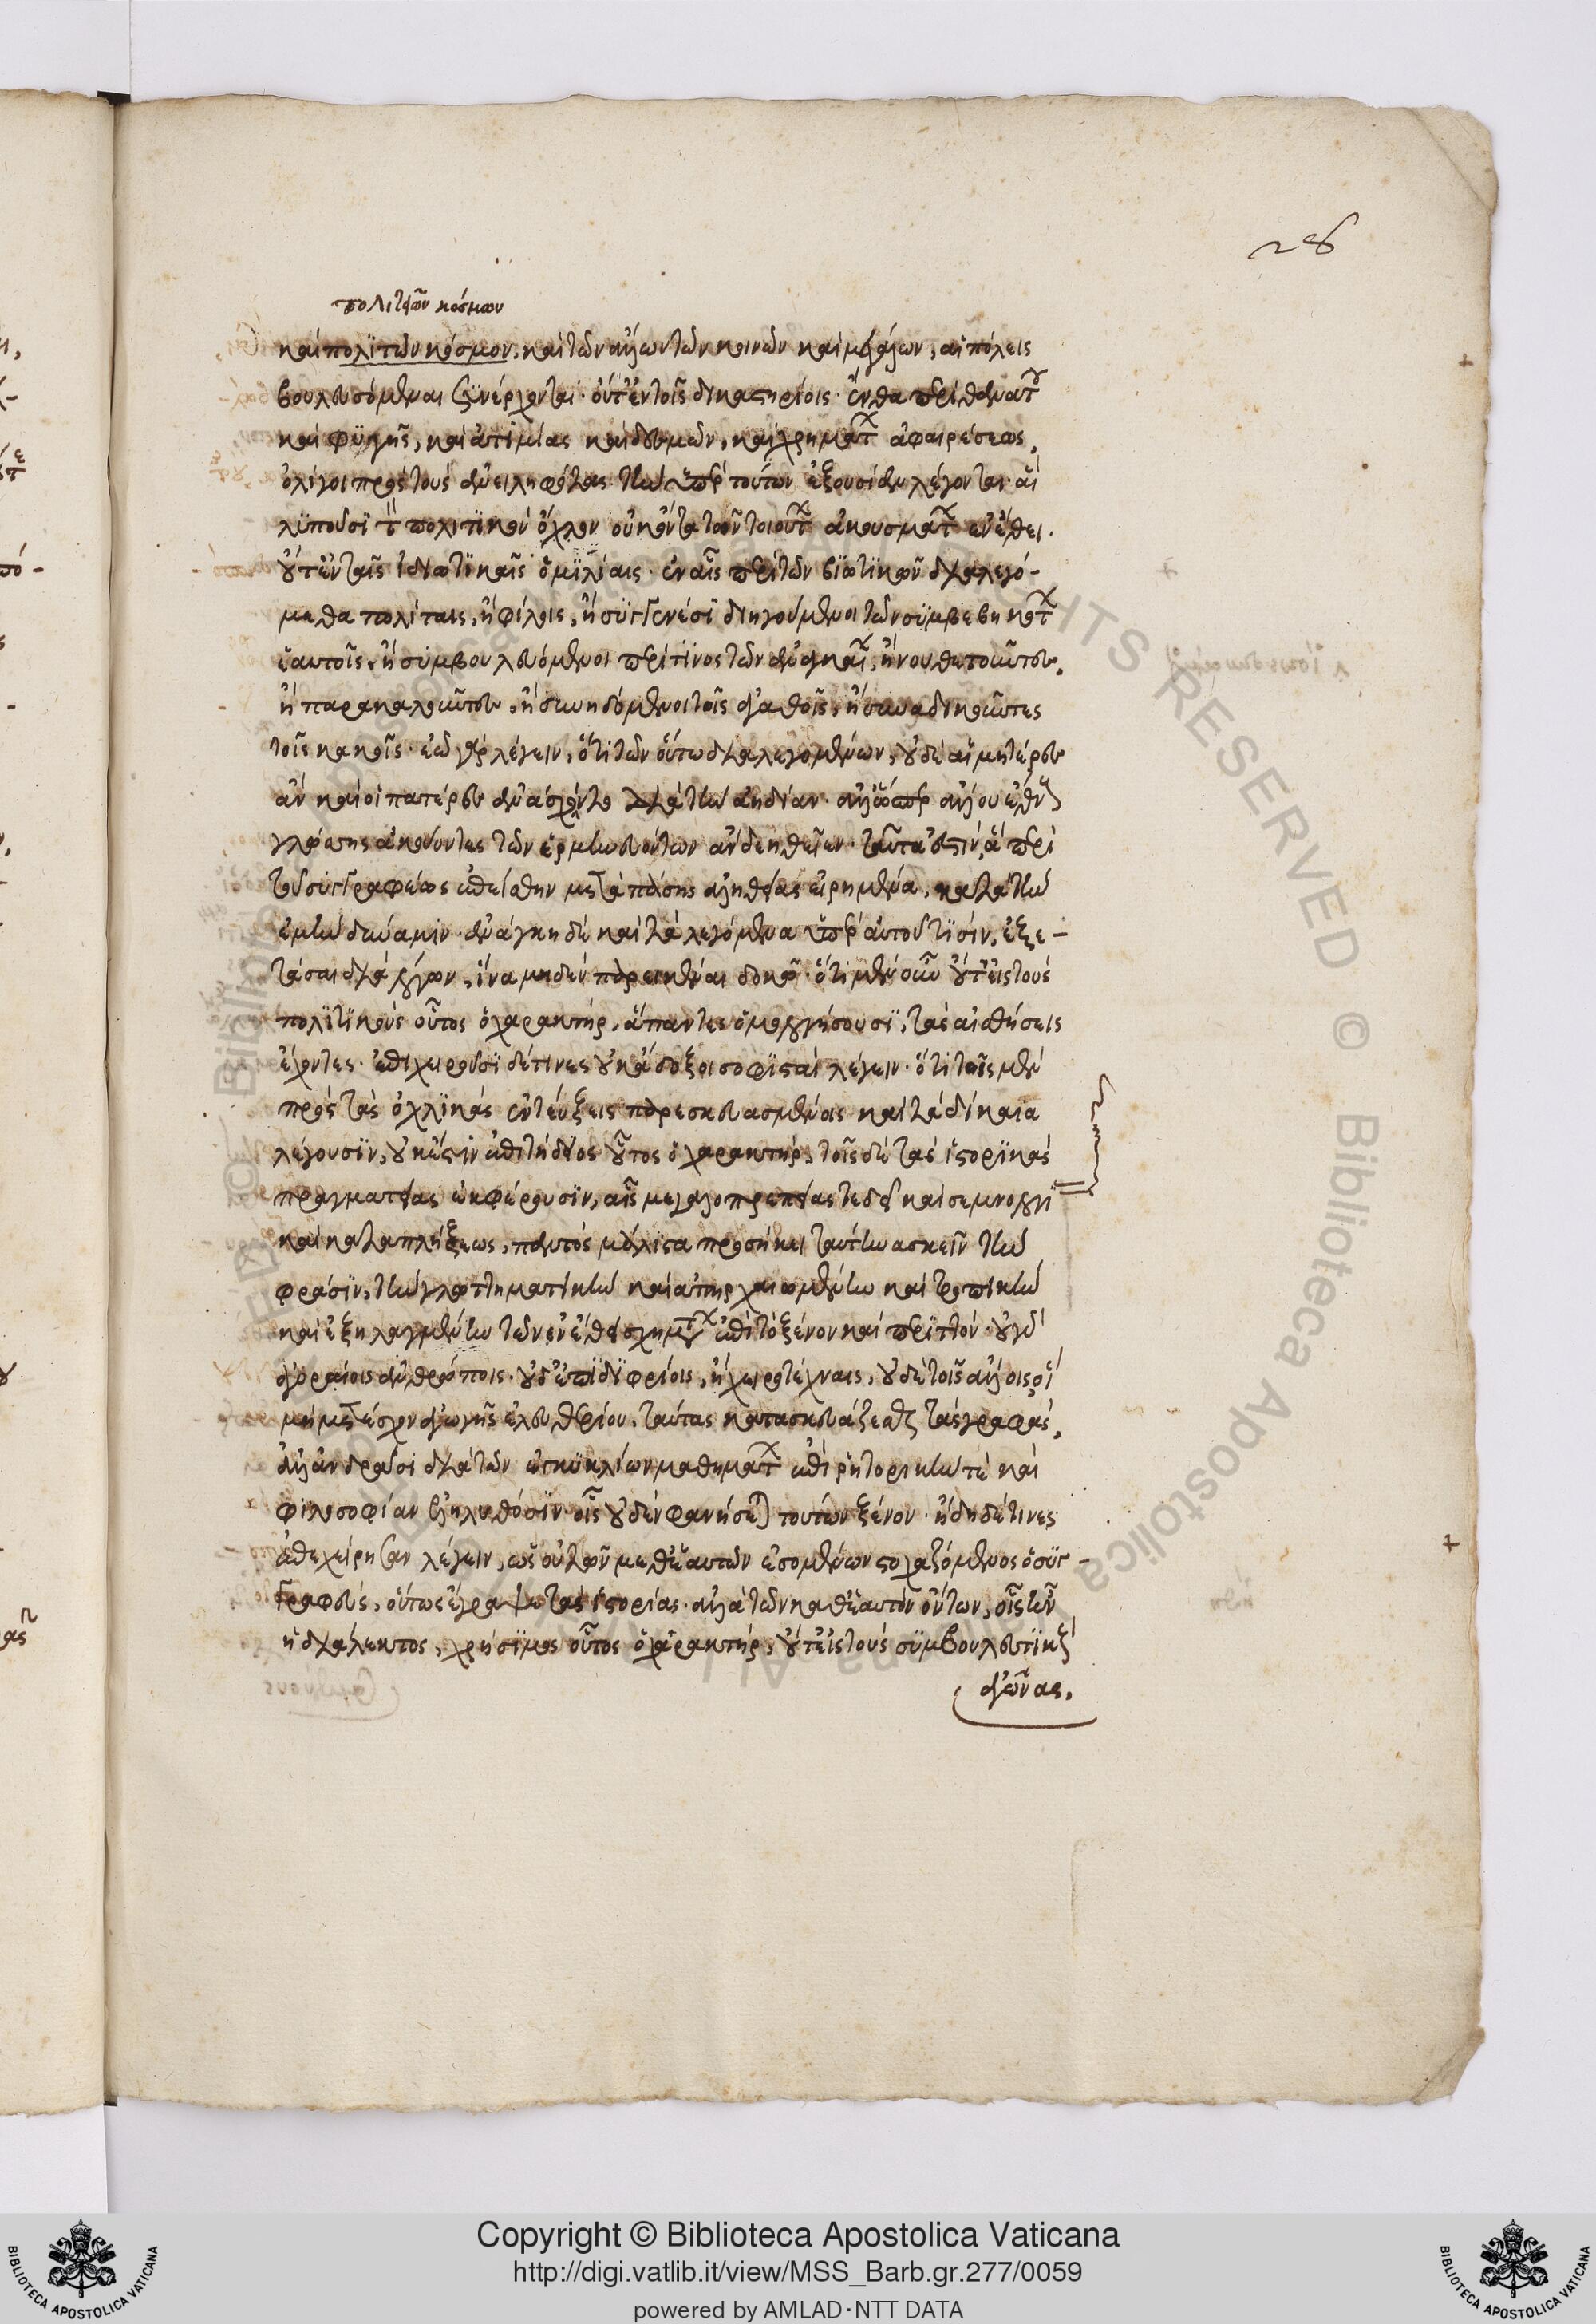 28
πολιτικῶν κόσμων
καὶ πολϊτῶν κόσμον, καὶ τῶν ἄλλων τῶν κοινῶν καὶ μεγάλων, αἱ πόλεις
βουλευσόμεναι ςϋνέρχονται· οὔτ' ἐν τοῖς δικαστηρίοις· ἔνθα περὶ θανάτου
καὶ φϋγῆς, καὶ ἀτϊμίας καὶ δεσμῶν, καὶ χρημάτων ἀφαιρέσεως,
ὀλίγοι πρὸς τοὺς ἀνειληφότας τὴν ὑπὲρ τούτων ἐξουσίαν λέγονται· αἳ
λϋποῦσϊ τὸν πολιτϊκὸν ὄχλον οὐκ ὄντα τῶν τοιούτων ἀκουσμάτων ἐν ἔθει.
οὔτ' ἐν ταῖς ἰδιωτϊκαῖς ὁμϊλίαις· ἐν αἷς περὶ τῶν βϊωτϊκῶν διαλεγό-
μεθα πολίταις, ἢ φίλοις, ἢ συγγενέσϊ διηγούμενοι τῶν συμβεβηκότων
ἑαυτοῖς, ἢ συμβουλευόμενοι περί τϊνος τῶν ἀναγκαίων, ἢ νουθετοῦντες,
ἢ παρακαλοῦντες, ἢ συνηδόμενοι τοῖς ἀγαθοῖς, ἢ συναλγοῦντες
τοῖς κακοῖς· ἐῶ γὰρ λέγειν, ὅτι τῶν οὕτω διαλεγομένων, οὐδὲ αἱ μητέρες
ἂν καὶ οἱ πατέρες ἀνάσχοιντο διὰ τὴν ἀηδίαν· ἀλλ' ὥσπερ ἀλλοεθνοῦς
γλώσσης ἀκούοντες τῶν ἑρμηνευόντων ἂν δεηθεῖεν· ταῦτα ἐστϊν, ἃ περὶ
τοῦ συγγραφέως ἐπείσθην μετὰ πάσης ἀληθείας εἰρημένα, κατὰ τὴν
ἐμὴν δύναμιν· ἀνάγκη δὲ καὶ τὰ λεγόμενα ὑπὲρ αὐτοῦ τϊσὶν, ἐξε-
τάσαι διὰ ὀλίγων, ἵνα μηδὲν παρεικέναι δοκῶ· ὅτι μὲν οὖν οὔτ' εἰς τοὺς
πολϊτϊκοὺς οὗτος ὁ χαρακτὴρ, ἅπαντες ὁμολογήσουσϊ, τὰς αἰσθήσεις
ἔχοντες· ἐπιχειροῦσϊ δέ τινες οὐκ ἄδοξοι σοφϊσταὶ λέγειν· ὅτι τοῖς μὲν
πρὸς τὰς ὀχλϊκὰς ἐντεύξεις παρεσκευασμένοις καὶ τὰ δίκαια
λέγουσϊν, οὐκ ἔστιν ἐπιτήδειος οὗτος ὁ χαρακτὴρ, τοῖς δὲ τὰς ἱστορϊκὰς
πραγματείας ἐκφέρουσϊν, αἷς μεγαλοπρεπείας τε δεῖ καὶ σεμνολογί
καὶ καταπλήξεως, παντὸς μάλϊστα προσήκει ταύτην ἀσκεῖν τὴν
φράσϊν, τὴν γλωττηματϊκὴν καὶ ἀπηρχαιωμένην καὶ τροπϊκὴν
καὶ ἐξηλλαγμένην τῶν ἐν ἔθει σχημάτων ἐπὶ τὸ ξένον καὶ περϊττὸν· οὐ γὰρ
ἀγοραίοις ἀνθρώποις· οὐδ' ἐπϊδϊφρίοις, ἢ χειροτέχναις, οὐδὲ τοῖς ἄλλοις, οἳ
μὴ μετέσχον ἀγωγῆς ἐλευθερίου, ταύτας κατασκευάζεσθαι τὰς γραφὰς,
ἀλλ' ἀνδράσϊ διὰ τῶν ἐγκϋκλίων μαθημάτων ἐπὶ ῥητορικήν τε καὶ
φϊλοσοφίαν ἐληλυθόσϊν· οἷς οὐδὲν φανήσεται τούτων ξένον· ἤδη δέ τινες
ἐπεχείρησαν λέγειν, ὡς οὐ τῶν μεθ' ἑαυτὸν ἐσομένων στοχαζόμενος ὁ συγ-
γραφεὺς, οὕτως ἔγραψε τὰς ἱστορίας· ἀλλὰ τῶν καθ' ἑαυτὸν ὄντων, οἷς τῶν
ἡ διάλεκτος, χρήσϊμος οὗτος ὁ χαρακτὴρ, οὔτ' εἰς τοὺς συμβουλευτϊκοὺς
ἀγῶνας.
Copyright © Biblioteca Apostolica Vaticana
http://digi.vatlib.it/view/MSS_Barb.gr.277/0059
powered by AMLAD·NTT DATA
BIBLIOTECA APOSTOLICA VATICANA
BIBLIOTECA APOSTOLICA VATICANA